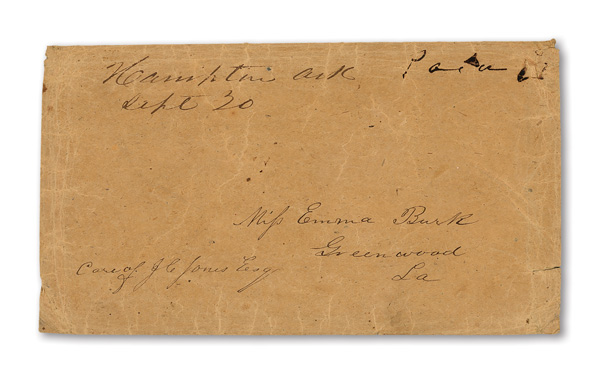 Hampton Ark Paid
Sept 20
Miss Emma Burk
Greenwood
La
Care of J C Jones Esq